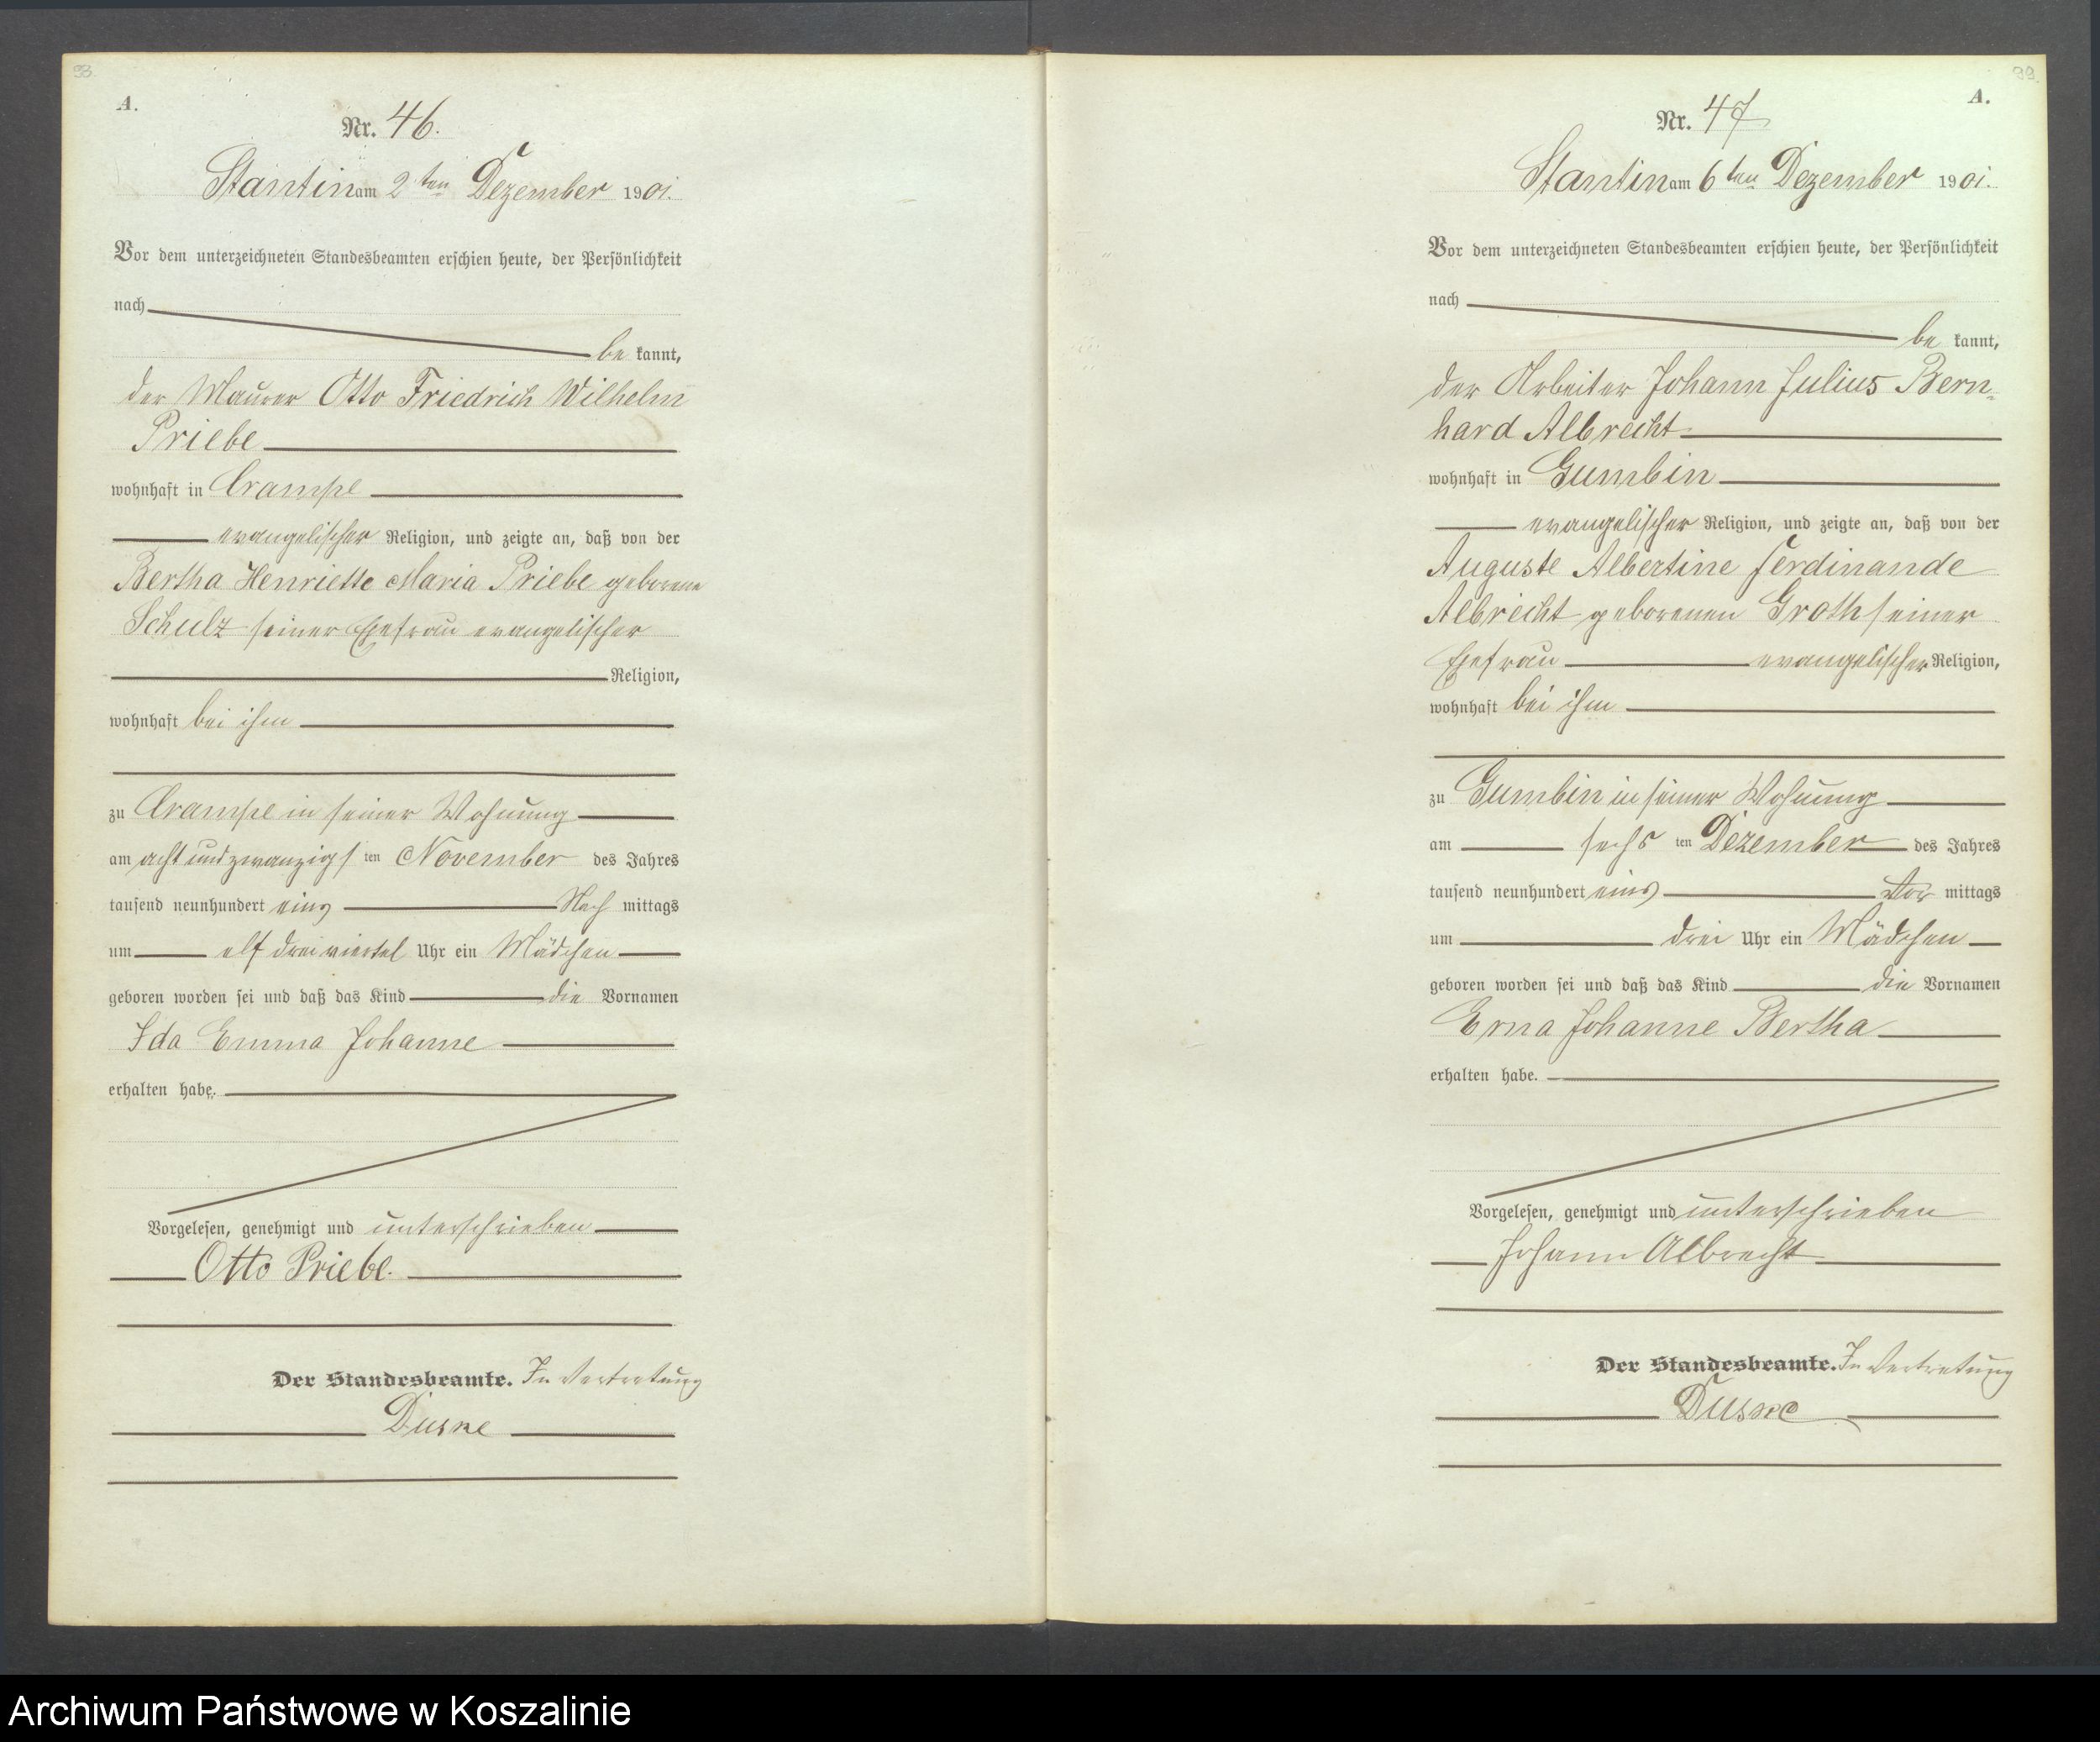 93.
A.
Nr. 46.
Stantin am 2ten Dezember 1901.
Vor dem unterzeichneten Standesbeamten erschien heute, der Persönlichkeit
nach
be kannt,
der Maurer Otto Friedrich Wilhelm
Priebe
wohnhaft in Crampe
evangelischer Religion, und zeigte an, daß von der
Bertha Henriette Maria Priebe geborene
Schulz seiner Ehefrau evangelischer
Religion,
wohnhaft bei ihm
zu Crampe in seiner Wohnung
am acht und zwanzigs ten November des Jahres
tausend neunhundert eins Nach mittags
um elf dreiviertel Uhr ein Mädchen
geboren worden sei und daß das Kind die Vornamen
Ida Emma Johanne
erhalten habe.
Vorgelesen, genehmigt und unterschrieben
Otto Priebe.
Der Standesbeamte. In Vertretung
99.
A.
Nr. 47
Stantin am 6ten Dezember 1901.
Vor dem unterzeichneten Standesbeamten erschien heute, der Persönlichkeit
nach
be kannt,
der Arbeiter Johann Julius Bern-
hard Albrecht
wohnhaft in Gumbin
evangelischer Religion, und zeigte an, daß von der
Auguste Albertine Ferdinande
Albrecht geborenen Groth seiner
Ehefrau evangelischer Religion,
wohnhaft bei ihm
zu Gumbin in seiner Wohnung
am sechs ten Dezember des Jahres
tausend neunhundert eins Vor mittags
um drei Uhr ein Mädchen
geboren worden sei und daß das Kind die Vornamen
Erna Johanne Bertha
erhalten habe.
Vorgelesen, genehmigt und unterschrieben
Johann Albrecht
Der Standesbeamte. In Vertretung
Archiwum Państwowe w Koszalinie